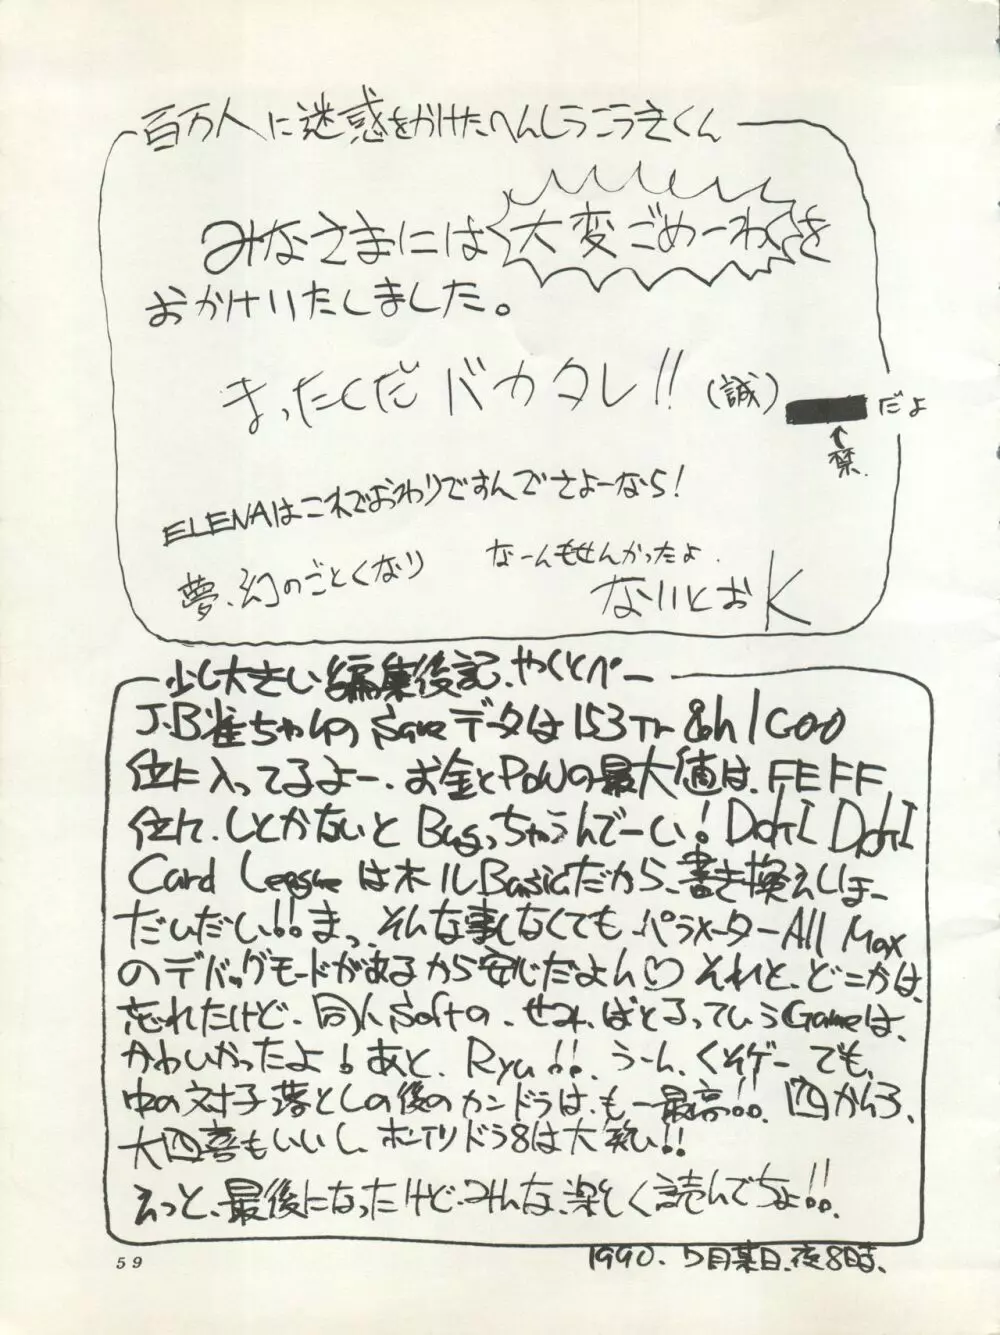 百万人に迷惑をかけたへんしうこうきくん
みなさまには大変ごめーわくを
おかけいたしました。
まったくだ バカタレ!! (誠)
だよ
↑
禁.
ELENAはこれでおわりですんでさよーなら!
夢、幻のごとくなり
なーんもせんかったよ.
ないとお K
少し大きい編集後記、やくとぺー
J・B雀ちゃんのSaveデータは153Tr &h1C00
位に入ってるよー、お金とPowの最大値は、FEFF
位に、しとかないとBugっちゃうんでーい! DokI DokI
Card LeagueはホルBasicだから、書き換えしほー
だいだしい!!まっ、そんな事しなくても、パラメーターAll Max
のデバッグモードがあるから安心だよん♡それと、どこかは、
忘れたけど、同人Softの、せみ、ばとるっていうGameは、
かわいかったよ!あと、Ryu!!、うーん、くそゲーでも、
中の対子落としの後のカンドラは、も一最高!!、四かんろ、
大四喜もいいし、ホンイツドラ8は大笑い!!
えっと、最後になったけど、みんな、楽しく読んでちょ!!、
1990、7月某日、夜8時、
59